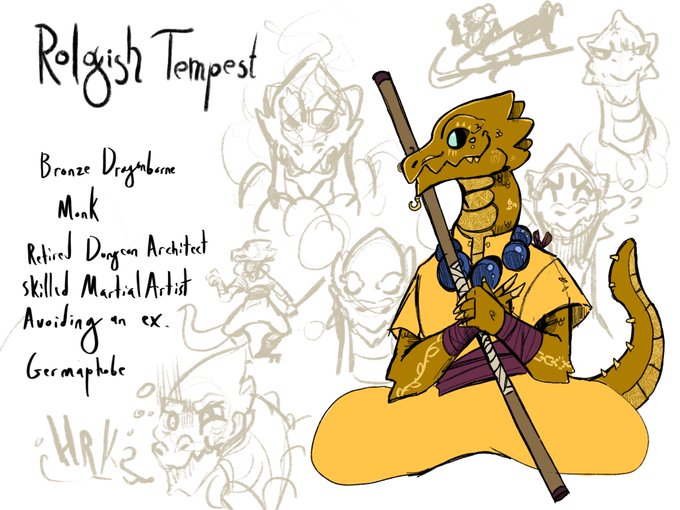 Rolgish Tempest
Bronze Dragonborne
Monk
Retired Dungeon Architect
Skilled Martial Artist
Avoiding an ex.
Germaphobe
HRK